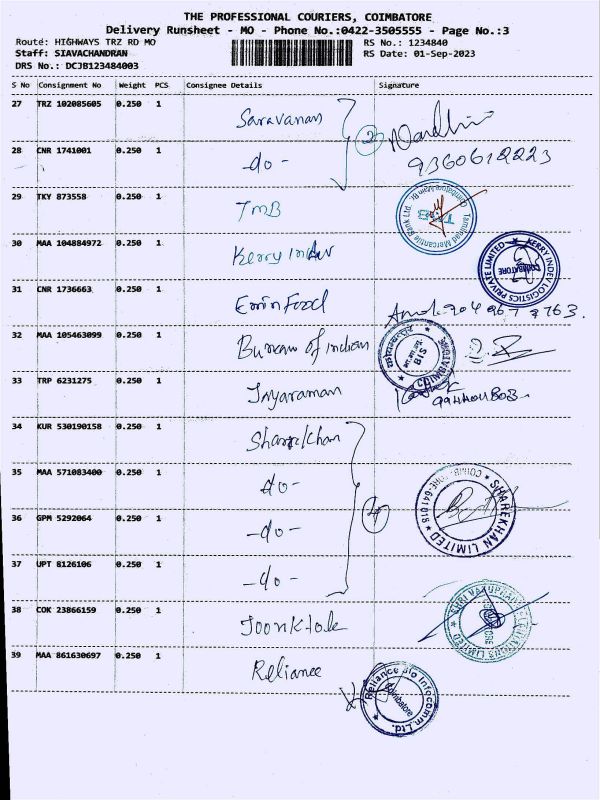 THE PROFESSIONAL COURIERS, COIMBATORE
Delivery Runsheet - MO - Phone No.:0422-3505555 - Page No.:3
Route: HIGHWAYS TRZ RD MO RS No.: 1234840
Staff: SIAVACHANDRAN RS Date: 01-Sep-2023
DRS No.: DCJB123484003
S No Consignment No Weight PCS Consignee Details Signature
27 TRZ 102085605 0.250 1 Saravanan
28 CNR 1741001 0.250 1 -do- 2 9360612223
29 TKY 873558 0.250 1 TMB
Tamilnad Mercantile Bank Ltd. TMB
30 MAA 104884972 0.250 1 Kerry Indev
KERRY INDEV LOGISTICS PRIVATE LIMITED COIMBATORE
31 CNR 1736663 0.250 1 Food
32 MAA 105463099 0.250 1 Bureau of Indian
BIS
33 TRP 6231275 0.250 1 Jayaraman
34 KUR 530190158 0.250 1 Sharekhan
35 MAA 571083400 0.250 1 -do-
36 GPM 5292064 0.250 1 -do- 4
SHAREKHAN LIMITED COIMBATORE-641018
37 UPT 8126106 0.250 1 -do-
38 COK 23866159 0.250 1 
39 MAA 861630697 0.250 1 Reliance
Reliance Jio Infocomm Ltd Coimbatore